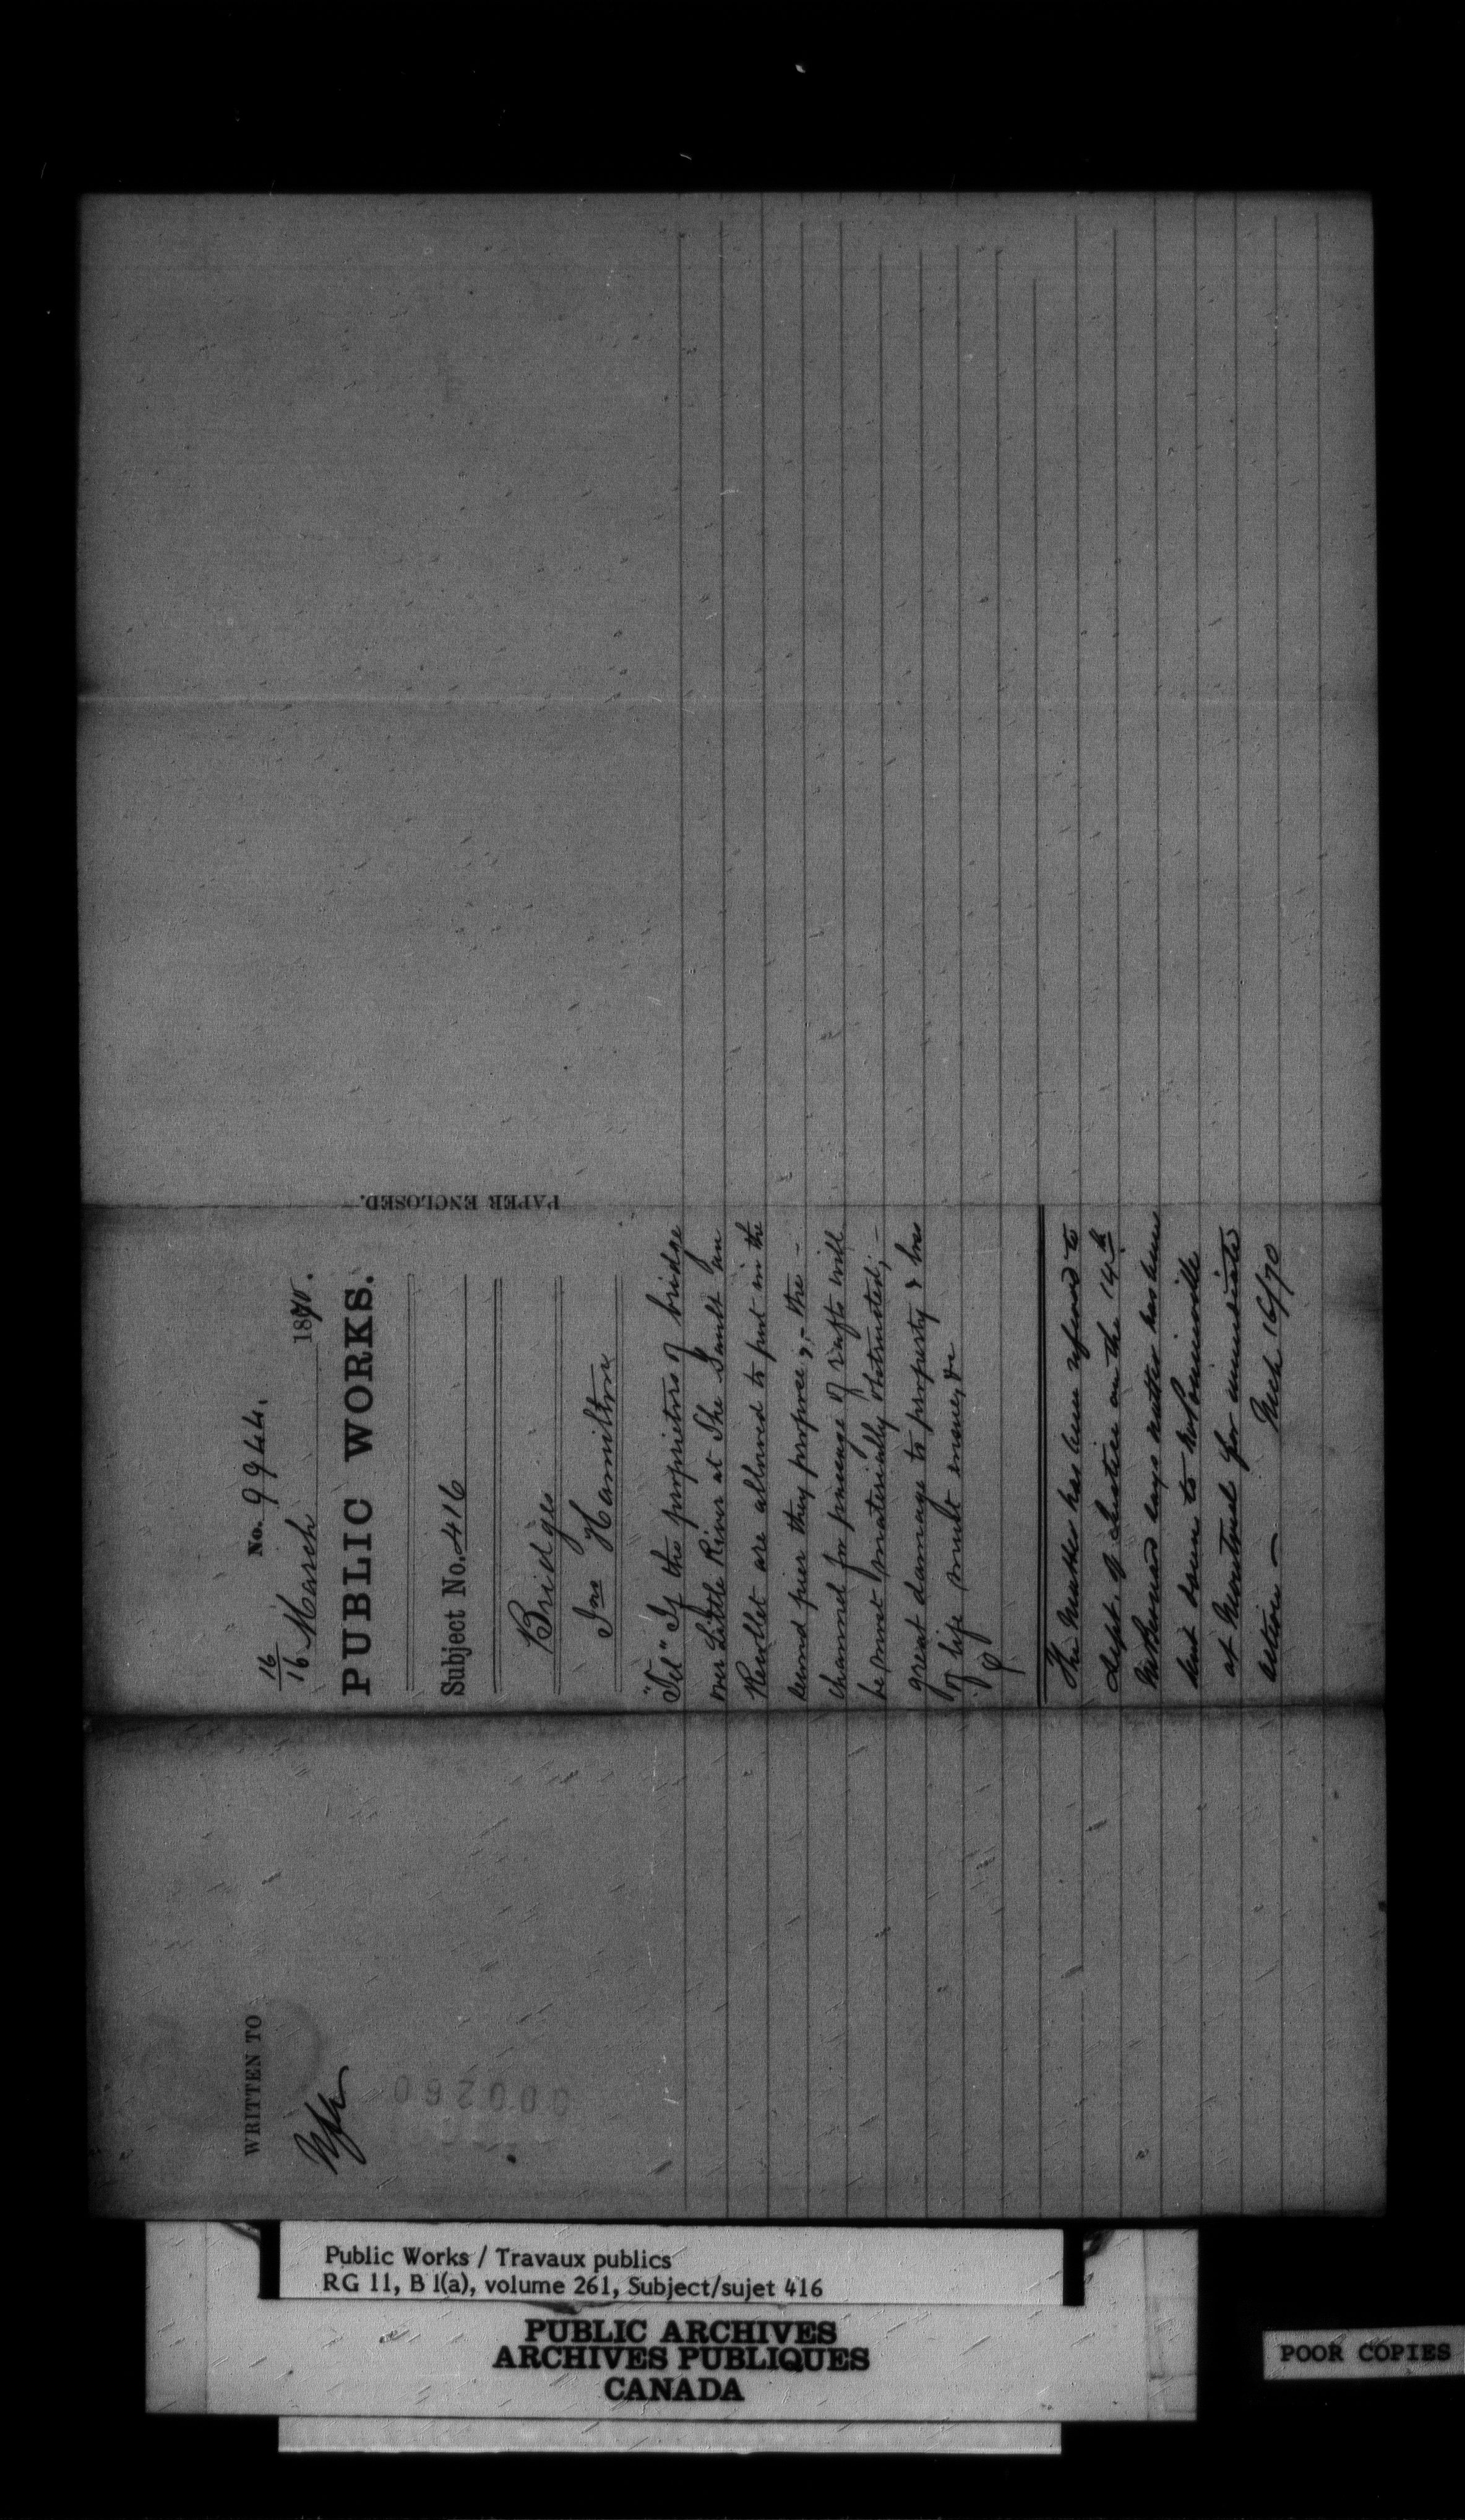 No. 9944.
16
16 March 1870.
PUBLIC WORKS.
Subject No. 416
Bridges
Jno Hamilton
"Tel" If the proprietors of bridge
over Little River at The Sault au
Recollet are allowed to put in the
second pier they propose, - the -
channel for passage of rafts will
be most materially obstructed; -
great damage to property & loss
of life must ensue, &c
The matter has been referred to
Dept. of Justice on the 14th
says matter has been
sent down to
at Montreal for immediate
action -
Mch 16/70
PAPER ENCLOSED.
WRITTEN TO
000260
Public Works / Travaux publics
RG 11, B 1(a), volume 261, Subject/sujet 416
PUBLIC ARCHIVES
ARCHIVES PUBLIQUES
CANADA
POOR COPIES